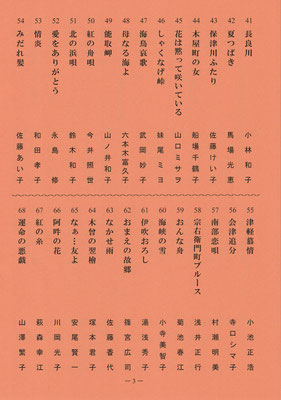 41 長良川 小林和子
42 夏つばき 馬場光恵
43 保津川ふたり 佐藤けい子
44 木屋町の女 船場千鶴子
45 花は黙って咲いている 山口ミサヲ
46 しゃくなげ峠 妹尾ミヨ
47 海鳥哀歌 武岡妙子
48 母なる海よ 六本木富久子
49 能取岬 山ノ井和子
50 紅の舟唄 今井照世
51 北の浜唄 鈴木和子
52 愛をありがとう 永島修
53 情炎 和田孝子
54 みだれ髪 佐藤あい子
55 津軽慕情 小池正浩
56 会津追分 寺口シマ子
57 南部恋唄 村瀬明美
58 宗右衛門町ブルース 浅井正行
59 おんな舟 菊池春江
60 海峡の雪 小寺美智子
61 伊吹おろし 湯浅秀子
62 おまえの故郷 篠宮広司
63 なかせ雨 佐藤香代
64 木曽の翌檜 塚本君子
65 なぁ…友よ 安尾賢一
66 阿吽の花 川岡光子
67 紅の糸 萩森幸江
68 運命の悪戯 山澤繁子
―3―